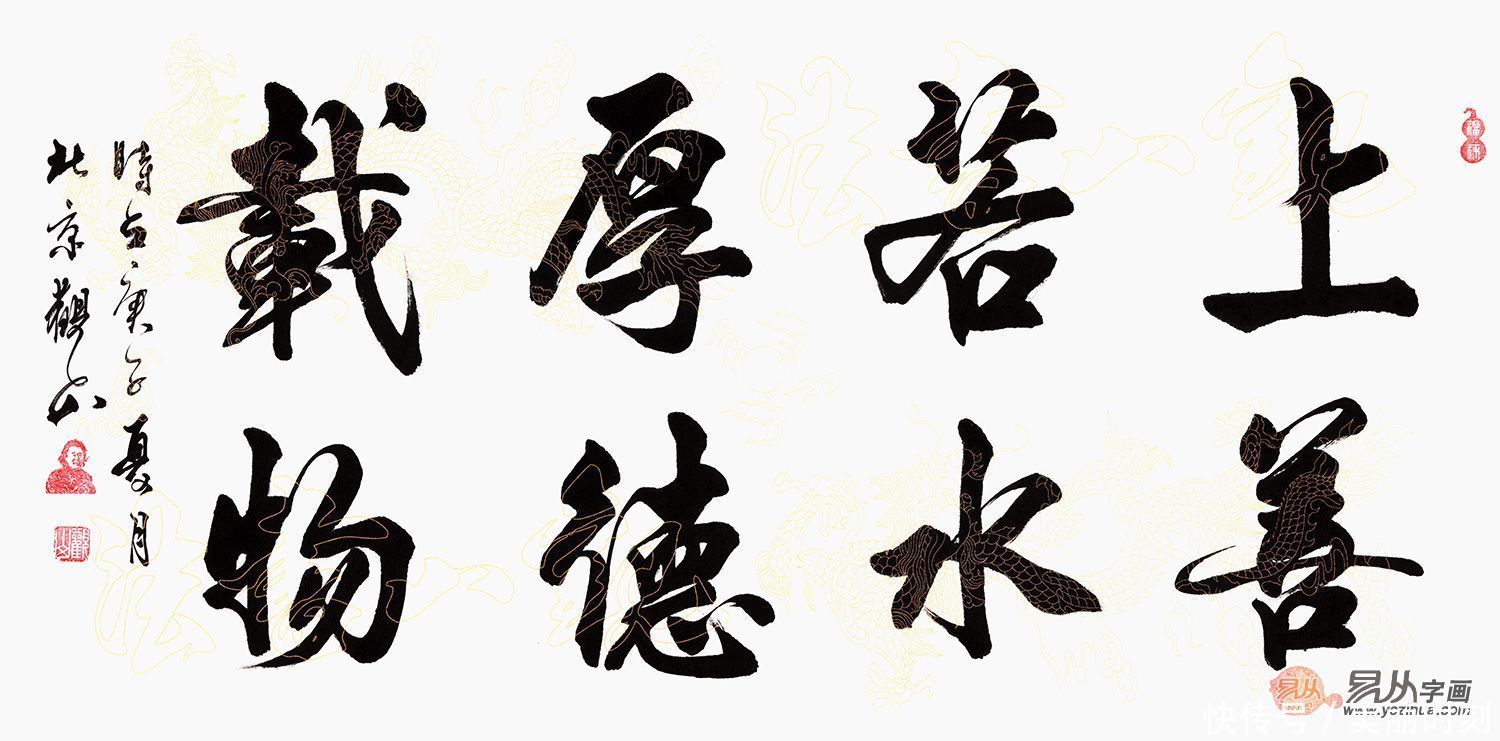 上善
若水
厚德
載物
時在庚子夏月
北京觀山
易从
易从字画
www.yczihua.com
快传号/美丽时刻